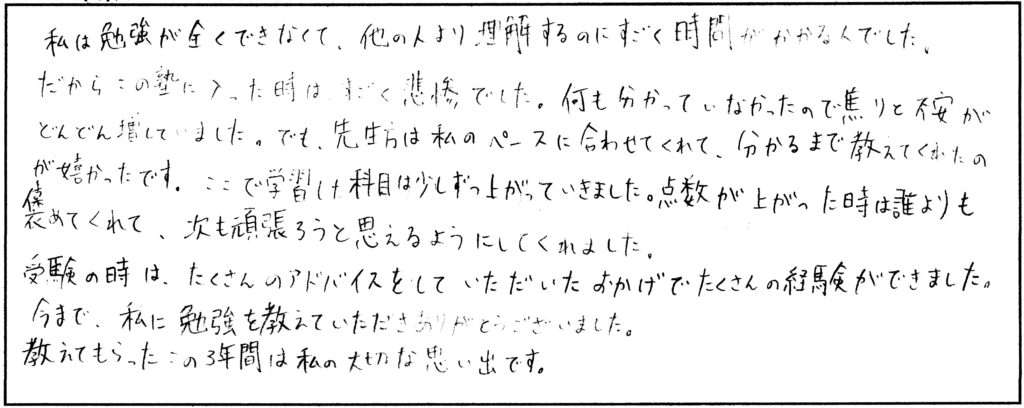 私は勉強が全くできなくて、他の人より理解するのにすごく時間がかかる人でした。
だからこの塾に入った時は、すごく悲惨でした。何も分かっていなかったので焦りと不安が
どんどん増していました。でも、先生方は私のペースに合わせてくれて、分かるまで教えてくれたの
が嬉かったです。ここで学習した科目は少しずつ上がっていきました。点数が上がった時は誰よりも
褒めてくれて、次も頑張ろうと思えるようにしてくれました。
受験の時は、たくさんのアドバイスをしていただいたおかげでたくさんの経験ができました。
今まで、私に勉強を教えていただきありがとうございました。
教えてもらったこの3年間は私の大切な思い出です。